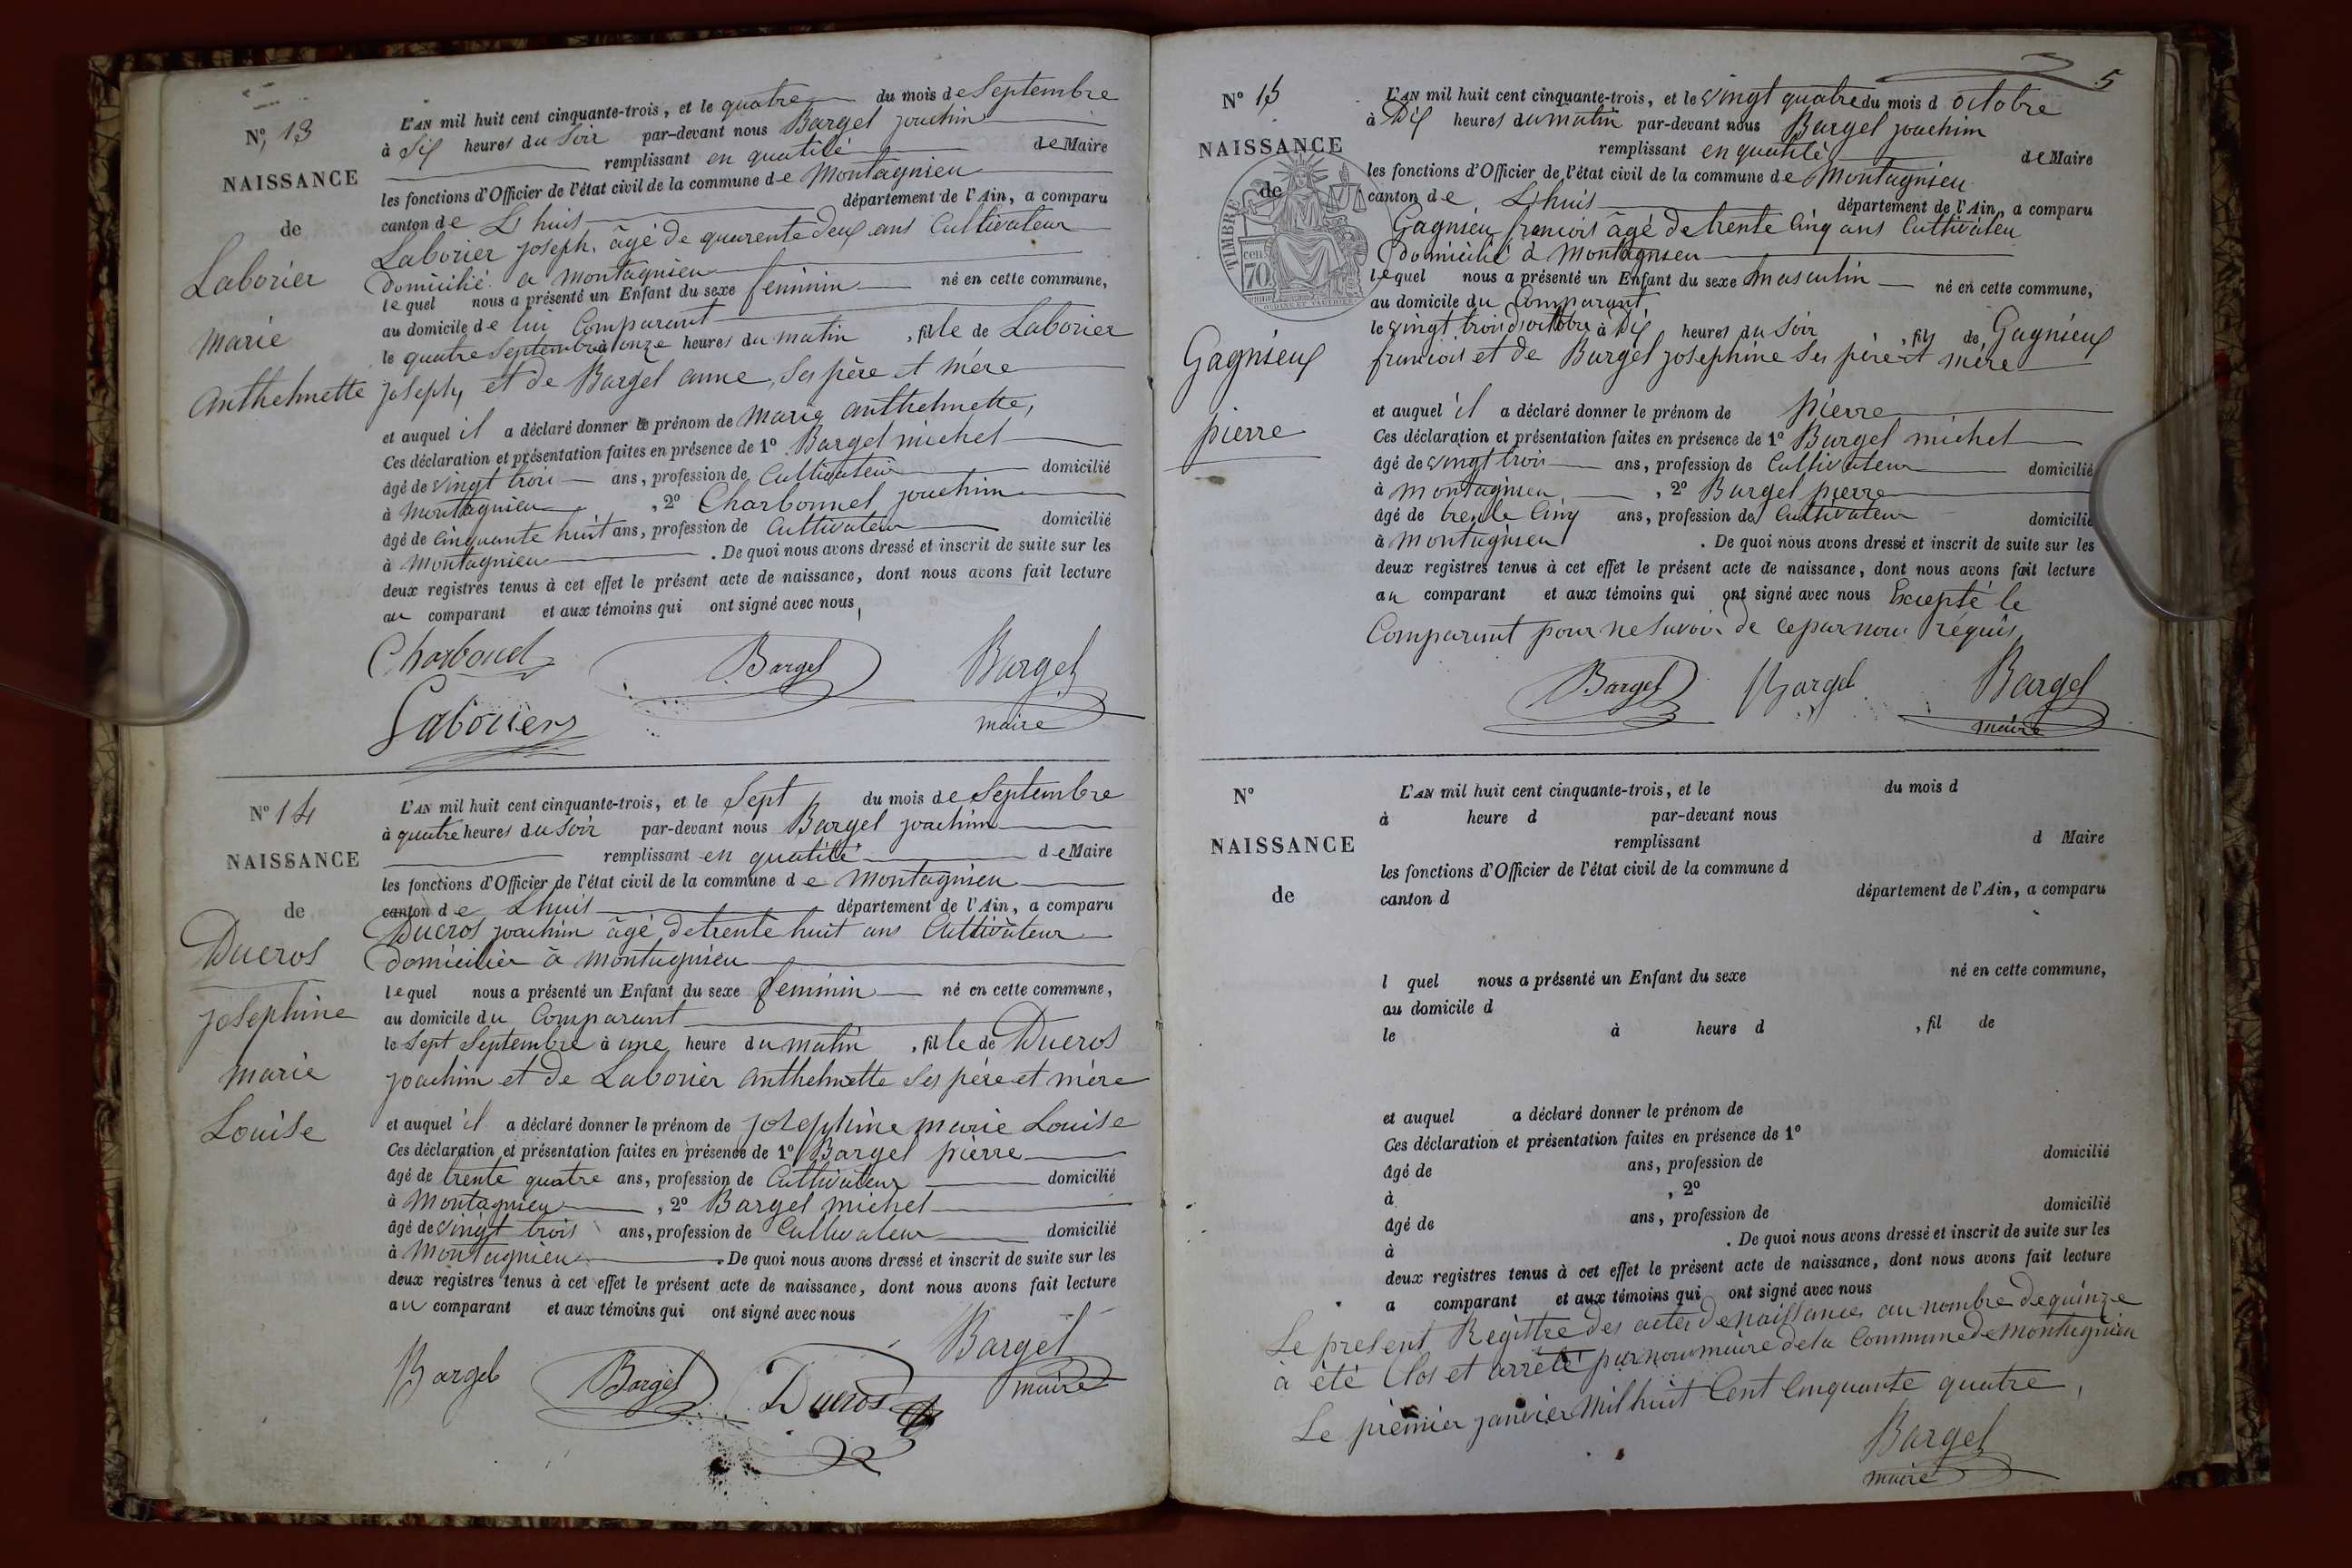 N° 13
NAISSANCE
de
Laborier
marie
anthelmette
L'AN mil huit cent cinquante-trois, et le quatre du mois de Septembre
à Six heures du Soir par-devant nous Bargel joachim
remplissant en qualité de Maire
les fonctions d'Officier de l'état civil de la commune de montagnieu
canton de Lhuis département de l'Ain, a comparu
Laborier joseph, âgé de quarente deux ans Cultivateur
domicilié a montagnieu
lequel nous a présenté un Enfant du sexe feminin né en cette commune,
au domicile de lui Comparant
le quatre Septembre à onze heures du matin, fille de Laborier
joseph, et de Bargel anne, Ses père et mère
et auquel il a déclaré donner le prénom de marie anthelmette,
Ces déclaration et présentation faites en présence de 1° Bargel michel
âgé de vingt trois ans, profession de Cultivateur domicilié
à montagnieu, 2° Charbonnel joachim
âgé de cinquante huit ans, profession de Cultivateur domicilié
à montagnieu. De quoi nous avons dressé et inscrit de suite sur les
deux registres tenus à cet effet le présent acte de naissance, dont nous avons fait lecture
au comparant et aux témoins qui ont signé avec nous,
Bargel Bargel
maire
N° 14
NAISSANCE
de
Ducros
josephine
marie
Louise
L'AN mil huit cent cinquante-trois, et le Sept du mois de Septembre
à quatre heures du Soir par-devant nous Bargel joachim
remplissant en qualité de Maire
les fonctions d'Officier de l'état civil de la commune de montagnieu
canton de Lhuis département de l'Ain, a comparu
Ducros joachim âgé de trente huit ans Cultivateur
domicilier à montagnieu
lequel nous a présenté un Enfant du sexe feminin né en cette commune,
au domicile du Comparant
le Sept Septembre à une heure du matin, fille de Ducros
joachim et de Laborier anthelmette Ses père et mère
et auquel il a déclaré donner le prénom de josephine marie Louise
Ces déclaration et présentation faites en présence de 1° Bargel pierre
âgé de trente quatre ans, profession de Cultivateur domicilié
à montagnieu, 2° Bargel michel
âgé de vingt trois ans, profession de Cultivateur domicilié
à montagnieu. De quoi nous avons dressé et inscrit de suite sur les
deux registres tenus à cet effet le présent acte de naissance, dont nous avons fait lecture
au comparant et aux témoins qui ont signé avec nous
Bargel Bargel Ducros Bargel
maire
5
N° 15
NAISSANCE
de
TIMBRE
70 cen.
Gagnieux
pierre
L'AN mil huit cent cinquante-trois, et le vingt quatre du mois d octobre
à Dix heures du matin par-devant nous Bargel joachim
remplissant en qualité de Maire
les fonctions d'Officier de l'état civil de la commune de Montagnieu
canton de Lhuis département de l'Ain, a comparu
Gagnieu francois âgé de trente Cinq ans Cultivateu
Domicilié à montagnieu
lequel nous a présenté un Enfant du sexe masculin né en cette commune,
au domicile du Comparant
le vingt trois d'octobre à Dix heures du Soir, fils de Gagnieux
francois et de Bargel josephine Ses père et mère
et auquel il a déclaré donner le prénom de pierre
Ces déclaration et présentation faites en présence de 1° Bargel michel
âgé de vingt trois ans, profession de Cultivateur domicilié
à montagnieu, 2° Bargel pierre
âgé de trente Cinq ans, profession de Cultivateur domicilié
à montagnieu. De quoi nous avons dressé et inscrit de suite sur les
deux registres tenus à cet effet le présent acte de naissance, dont nous avons fait lecture
au comparant et aux témoins qui ont signé avec nous Excepté le
Comparant pour ne Savoir de ce par nous requis
Bargel Bargel Bargel
maire
N°
NAISSANCE
de
L'AN mil huit cent cinquante-trois, et le du mois d
à heure d par-devant nous
remplissant d Maire
les fonctions d'Officier de l'état civil de la commune d
canton d département de l'Ain, a comparu
l quel nous a présenté un Enfant du sexe né en cette commune,
au domicile d
le à heure d, fil de
et auquel a déclaré donner le prénom de
Ces déclaration et présentation faites en présence de 1°
âgé de ans, profession de domicilié
à, 2°
âgé de ans, profession de domicilié
à. De quoi nous avons dressé et inscrit de suite sur les
deux registres tenus à cet effet le présent acte de naissance, dont nous avons fait lecture
a comparant et aux témoins qui ont signé avec nous
Le présent Registre des actes de naissances au nombre de quinze
à été Clos et arrêté par nous maire de la Commune de montagnieu
Le premier janvier mil huit Cent Cinquante quatre,
Bargel
maire